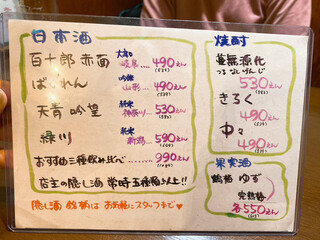 日本酒
百十郎 赤面 大辛口 岐阜……490えん
ばくれん 吟醸 山形……490えん
天青 吟望 純米 神奈川…530えん
緑川 純米 新潟……590えん
おすすめ三種飲み比べ……990えん
店主の隠し酒 常時五種類以上!!
隠し酒 銘柄は お気軽にスタッフまで♥
焼酎
蔓無源氏
つるなしげんじ
530えん
きろく
490えん
中々
490えん
果実酒
鶴梅 ゆず
完熟梅
各550えん